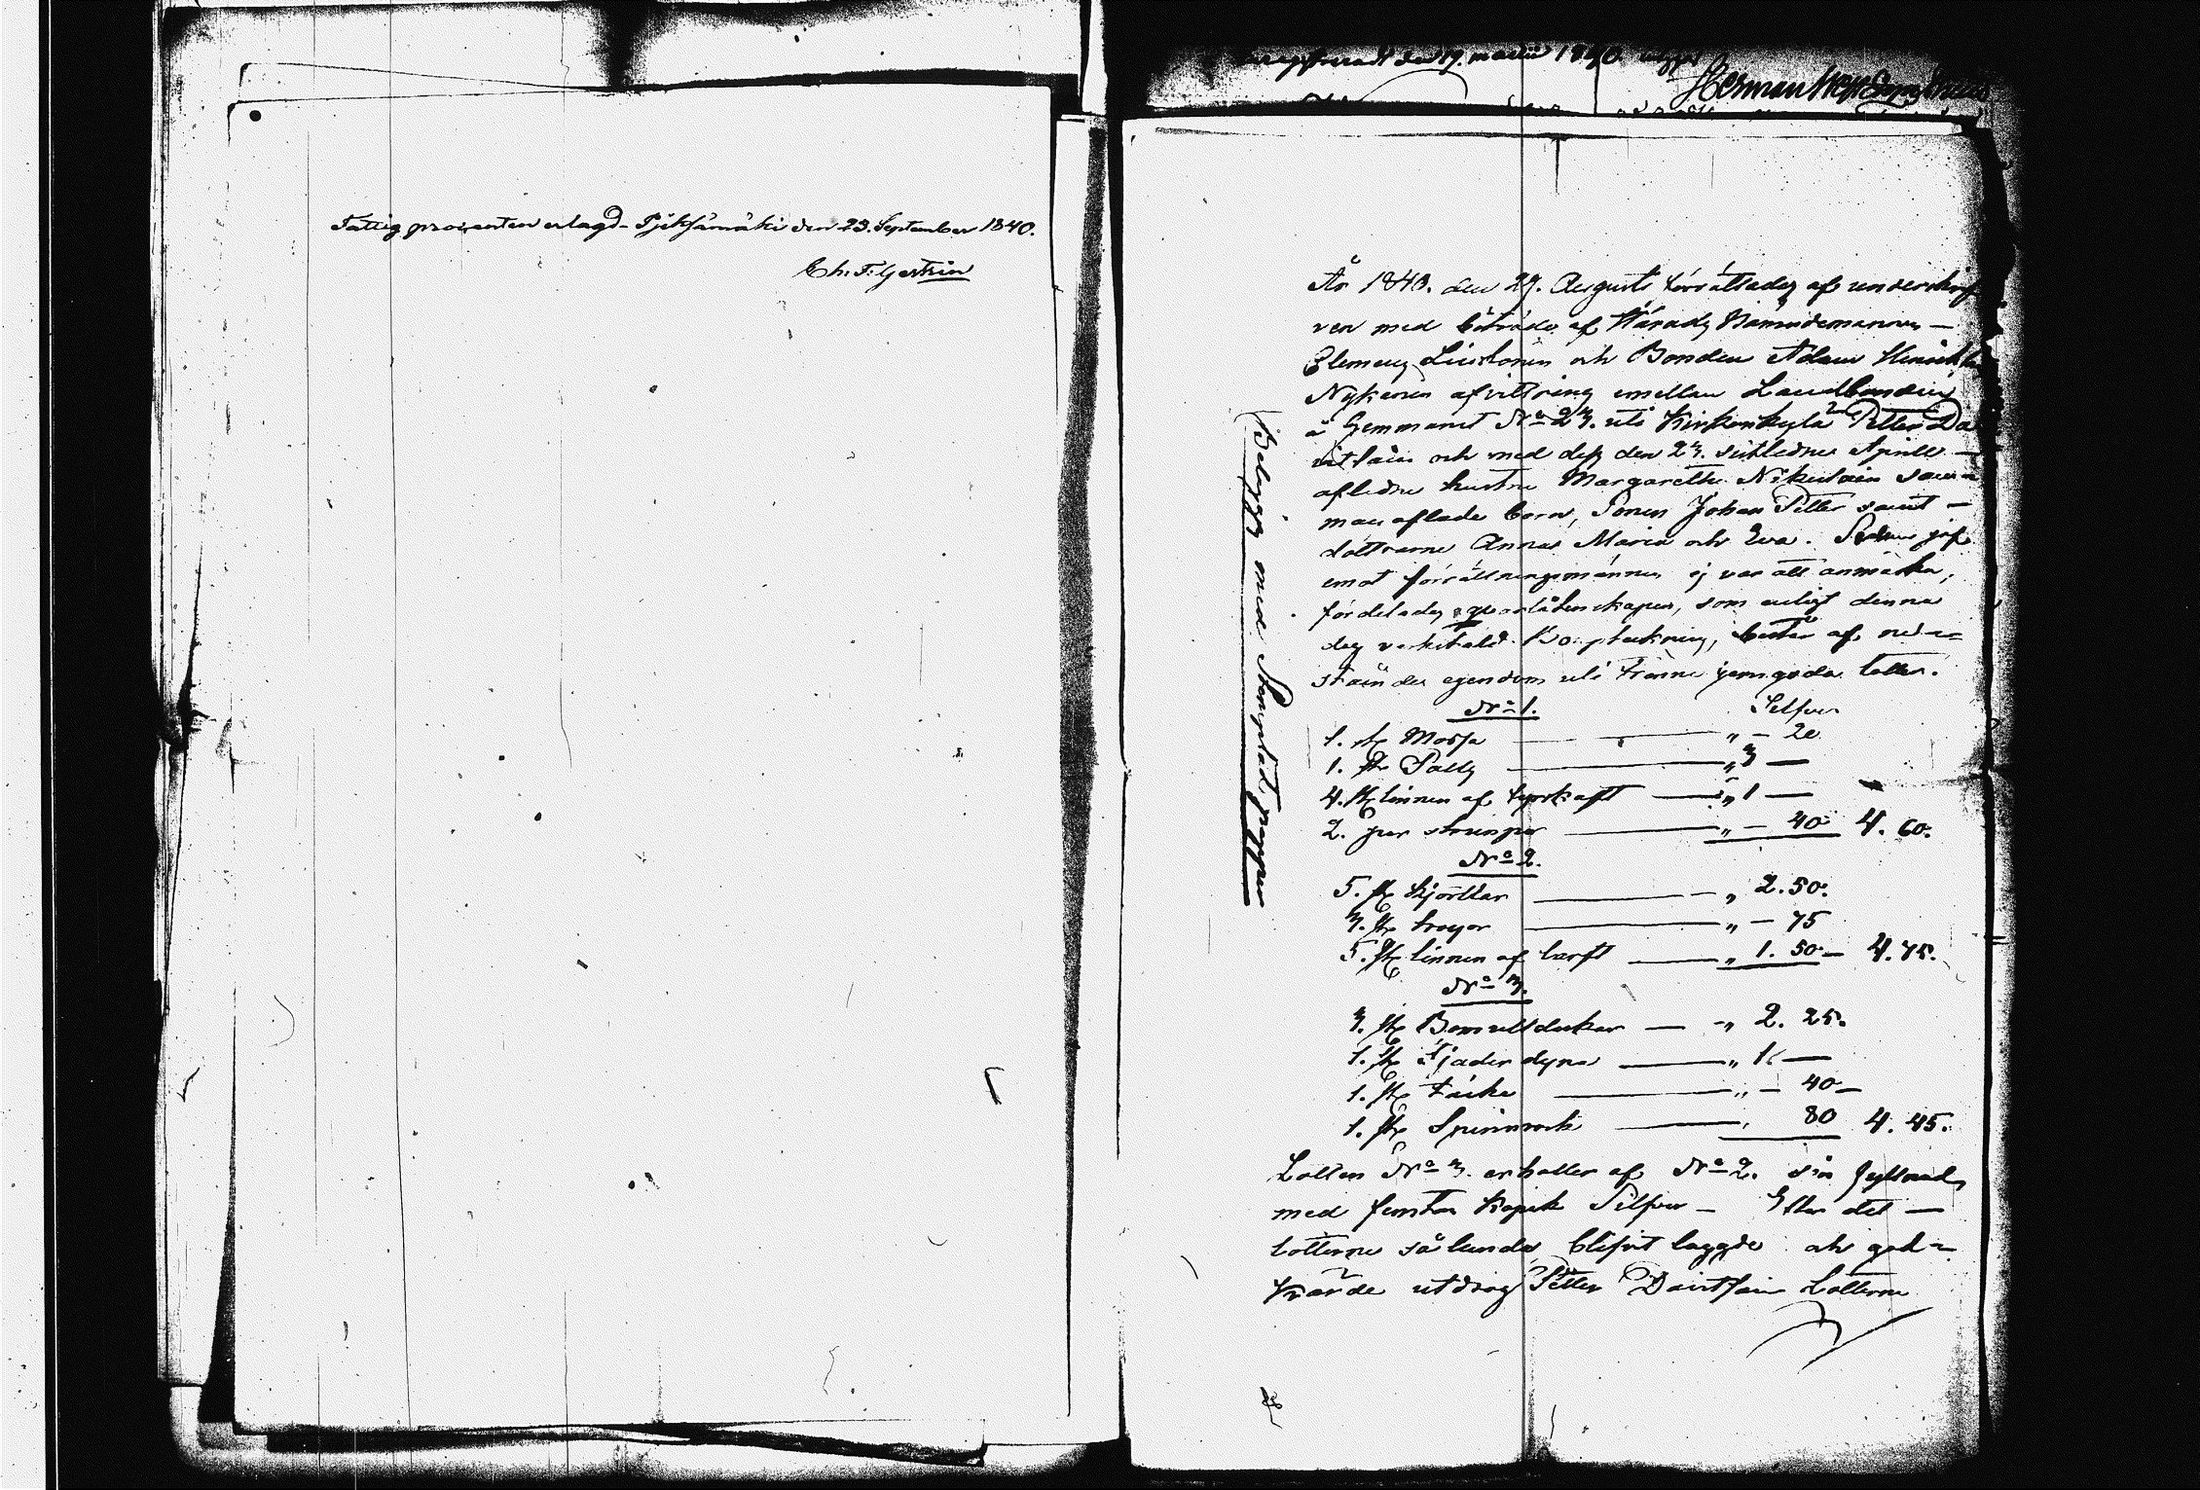 Fattig procenten erlagd. Pjeksämäki den 23. September 1840.
Ch. F. Gestrin
den 17. martii 1840.
Herman
År 1840. den 29. Augusti förrättades af underskrif
ven med biträde af Härads Nämndemannen
Clemens Liustonen och Bonden Adam Hinrich
Nykänen afvittring emellan Landbonden
å Hemmanet No 23. uti Kirkonkylä Petter Da
vitsain och med dess den 23. sistledne Aprill
aflidne hustru Margaretha Nikulain sam
man aflade barn, Sonen Johan Petter samt
döttrarne Anna Maria och Eva. Sedan jäf
emot förrättningsmännen ej var att anmärka,
fördelades qvarlåtenskapen, som enligt denna
dag verkstäld Bouptekning, består af ned
stående egendom uti tränne jemgoda lotter.
No 1. Silfver
1. st Mössa " — 20
1. st Päls " 3 —
4. st linnen af tyskaft " 1 —
2. par strumpor " — 40 4. 60.
No 2.
5. st kjortlar " 2. 50.
3. st tröyor " — 75
5. st linnen af lärft " 1. 50 — 4. 75.
No 3.
3. st Bomullsdukar " 2. 25.
1. st Fjäder dyna " 1 —
1. st Täcke " — 40 —
1. st Spinnrock " 80 4. 45.
Lotten No 3. erhåller af No 2. sin fyllnad
med femton Kopek Silfver — Efter det
lotterne sålunda blifvit lagde och god
kände utdrog Petter Davitsain Lotterne
Belägges med Stempladt papper